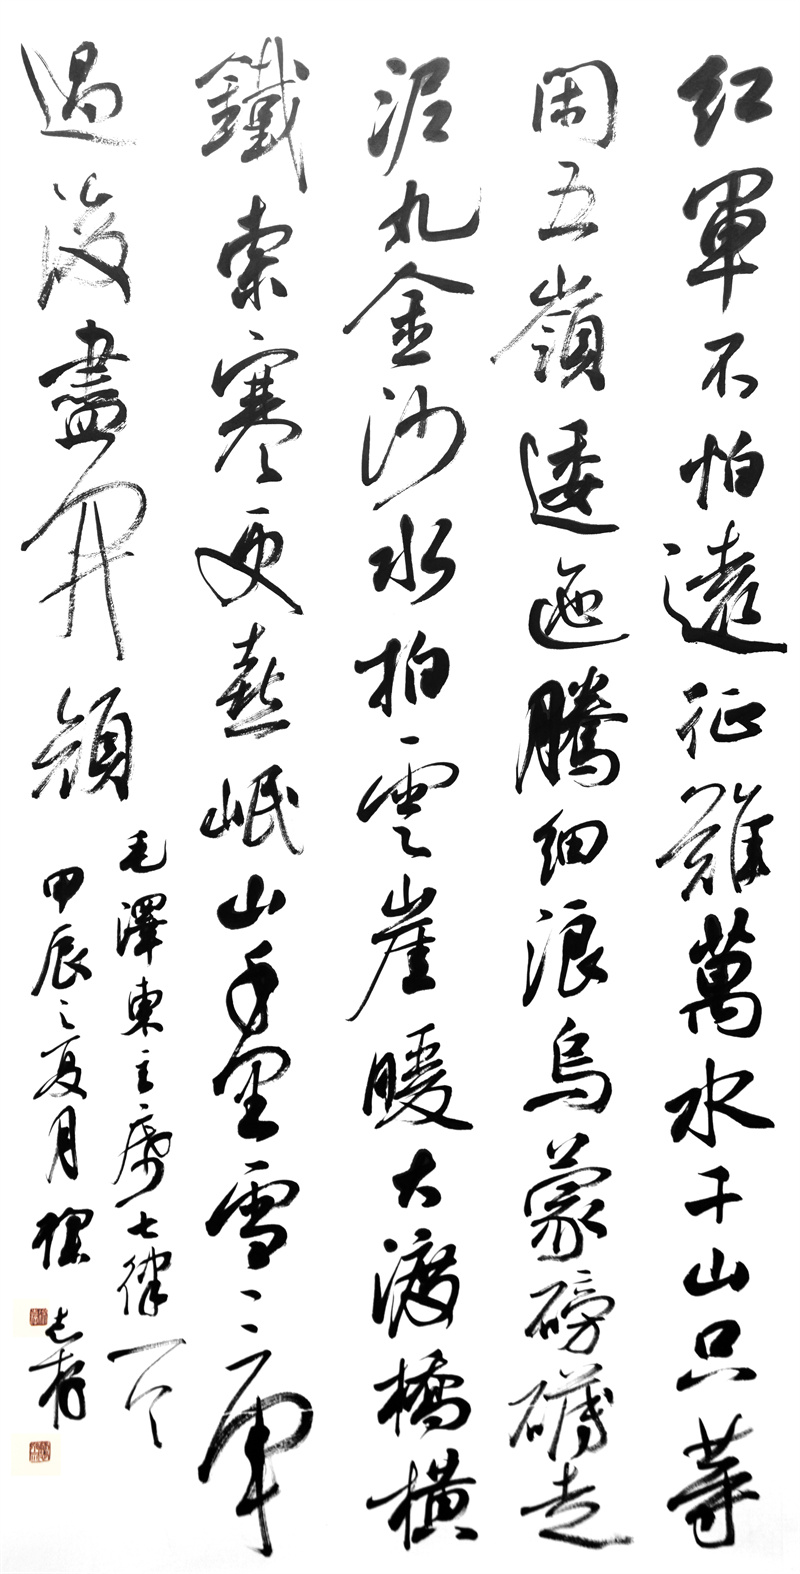 紅軍不怕遠征難萬水千山只等
閑五嶺逶迤騰細浪烏蒙磅礴走
泥丸金沙水拍雲崖暖大渡橋橫
鐵索寒更喜岷山千里雪三軍
過後盡開顏
毛澤東主席七律一
甲辰之夏月